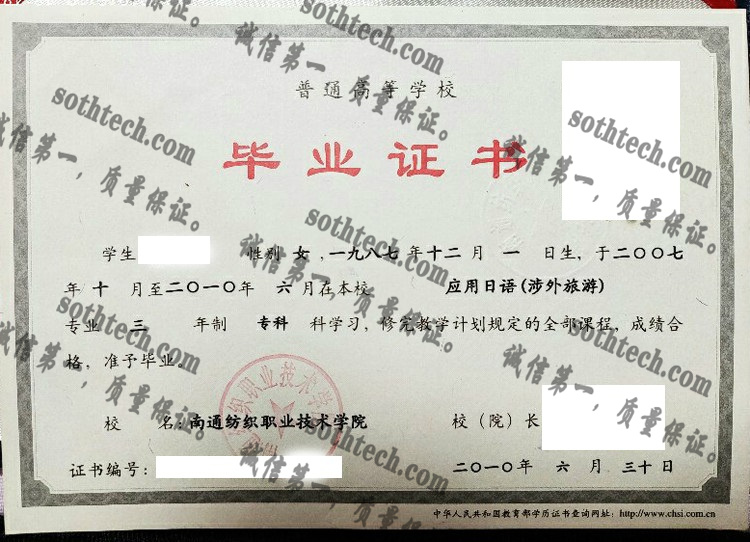 普通高等学校
毕业证书
学生 性别 女 ,一九八七 年 十二 月 一 日生，于二〇〇七
年 十 月至二〇一〇年 六 月在本校 应用日语(涉外旅游)
专业 三 年制 专科 科学习，修完教学计划规定的全部课程，成绩合
格，准予毕业。
校 名: 南通纺织职业技术学院 校（院）长
证书编号: 二〇一〇年 六 月 三十 日
中华人民共和国教育部学历证书查询网址: http://www.chsi.com.cn
sothtech.com
诚信第一，质量保证。
sothtech.com
诚信第一，质量保证。
sothtech.com
诚信第一，质量保证。
sothtech.com
诚信第一，质量保证。
sothtech.com
诚信第一，质量保证。
sothtech.com
诚信第一，质量保证。
sothtech.com
诚信第一，质量保证。